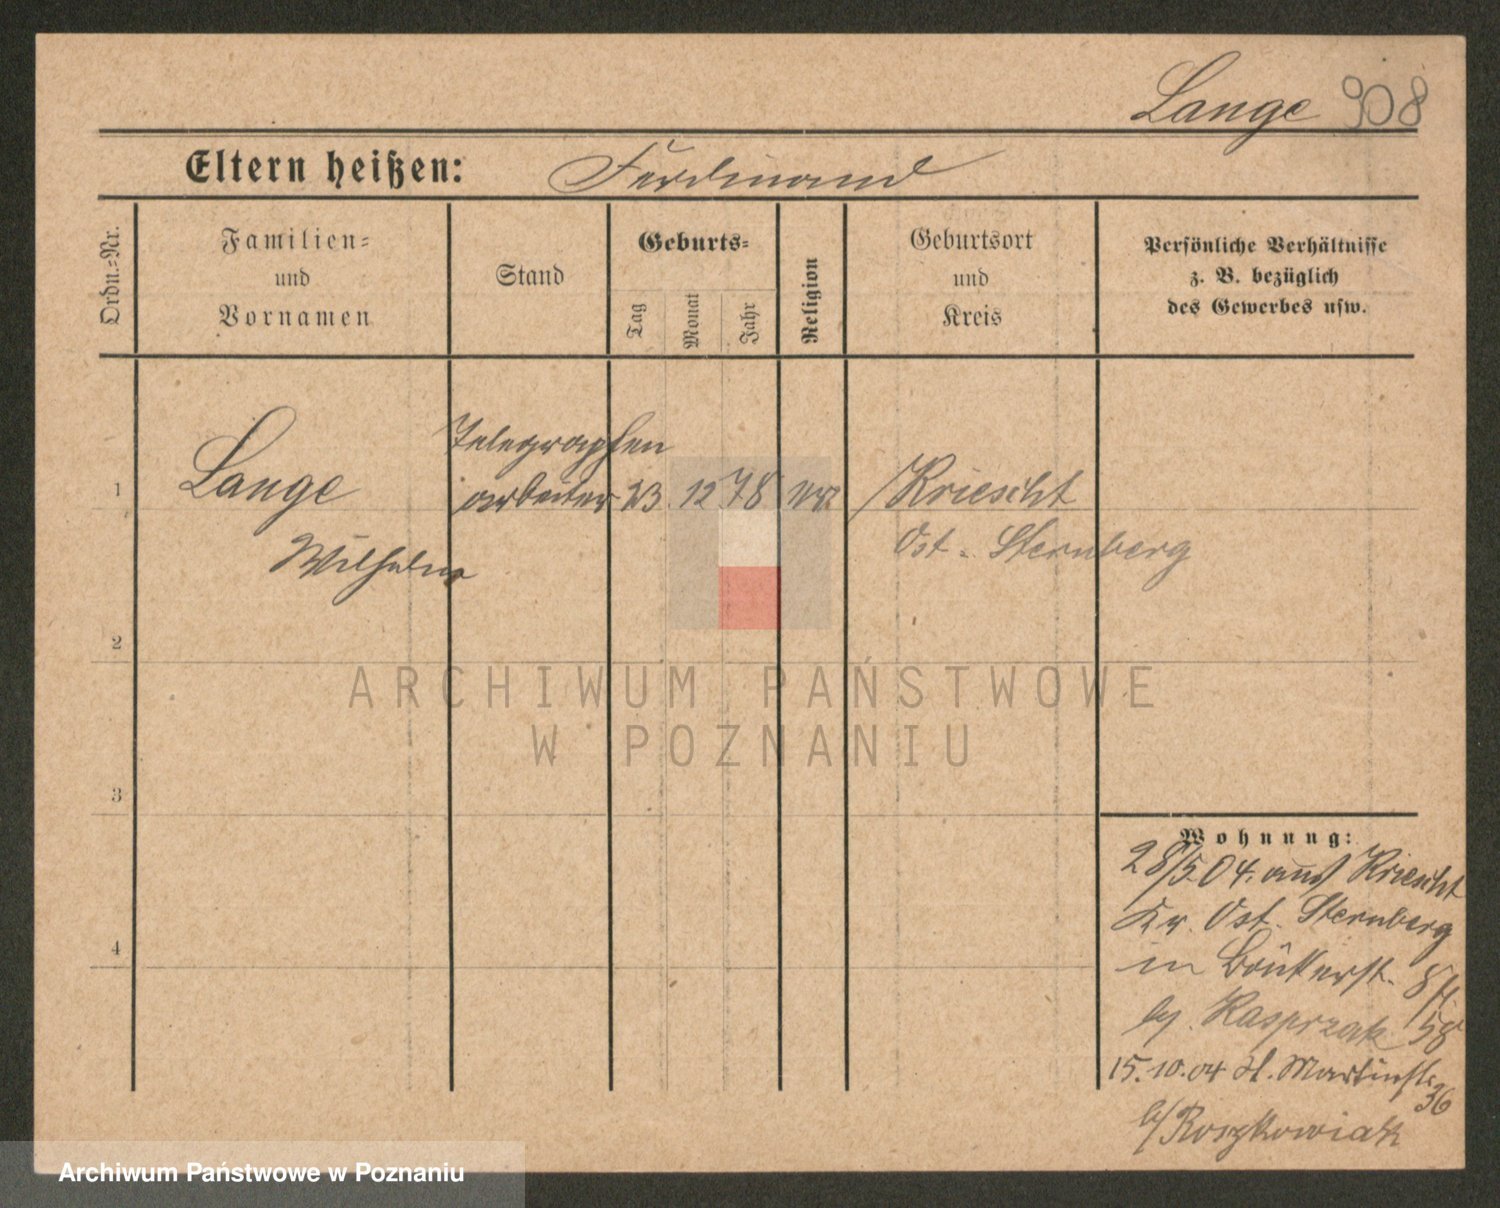 Lange 908
Eltern heißen: Ferdinand
Ordn.-Nr.
Familien-
und
Vornamen
Stand
Geburts-
Tag
Monat
Jahr
Religion
Geburtsort
und
Kreis
Persönliche Verhältnisse
z. B. bezüglich
des Gewerbes usw.
Telegraphen
1 Lange arbeiter 23 12 78 /Kriescht
Wilhelm Ost-Sternberg
2
3
4
Wohnung:
28/5.04. aus Kriescht
Kr. Ost. Sternberg
in
by. Kasprzak 58
15.10.04 St. Martinstr.
36
b/ Roszkowiak
ARCHIWUM PAŃSTWOWE
W POZNANIU
Archiwum Państwowe w Poznaniu